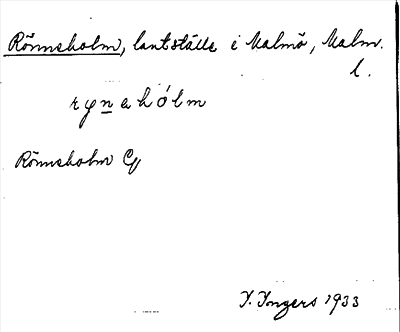 Rönneholm, lantställe i Malmö, Malm.
l.
rynehólm
Rönneholm
I. Ingers 1933